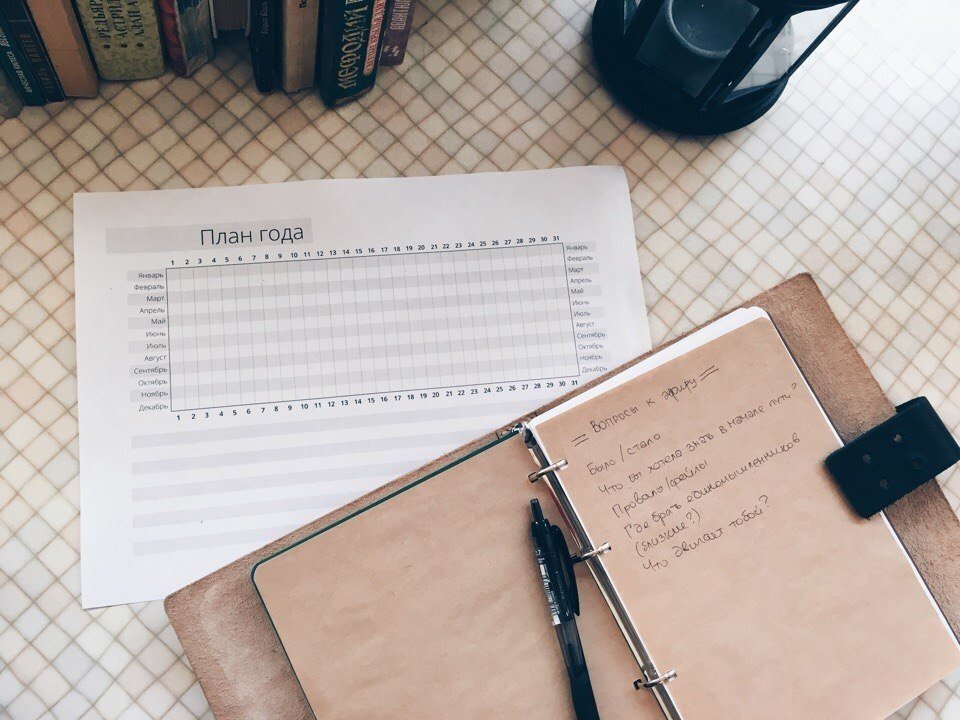 РЕДЬЯРД
АСТРИД
АЛАН А.
МЕФОДИЙ
План года
1 2 3 4 5 6 7 8 9 10 11 12 13 14 15 16 17 18 19 20 21 22 23 24 25 26 27 28 29 30 31
Январь Январь
Февраль Февраль
Март Март
Апрель Апрель
Май Май
Июнь Июнь
Июль Июль
Август Август
Сентябрь Сентябрь
Октябрь Октябрь
Ноябрь Ноябрь
Декабрь Декабрь
1 2 3 4 5 6 7 8 9 10 11 12 13 14 15 16 17 18 19 20 21 22 23 24 25 26 27 28 29 30 31
= Вопросы к эфиру =
Было/стало
Что бы хотела знать в начале пути?
Провалы/фейлы
Где брать единомышленников
(близкие?)
Что движет тобой?